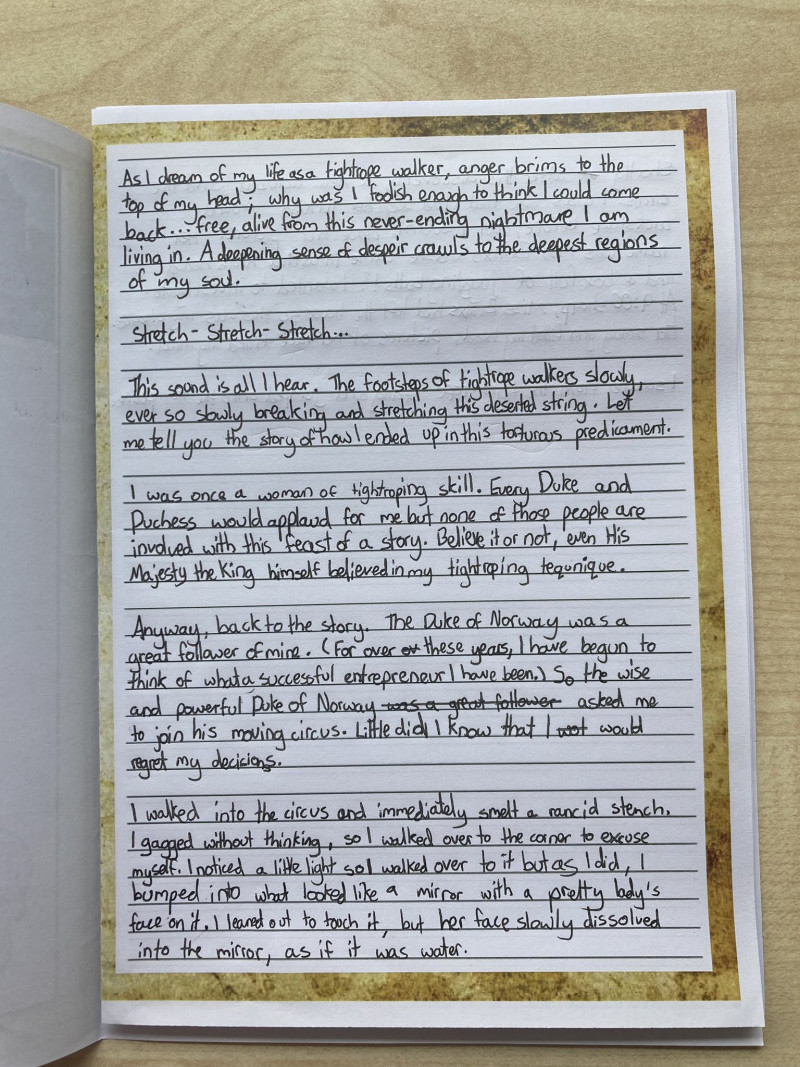 As I dream of my life as a tightrope walker, anger brims to the
top of my head; why was I foolish enough to think I could come
back...free, alive from this never-ending nightmare I am
living in. A deepening sense of despeir crawls to the deepest regions
of my soul.
Stretch- Stretch- Stretch...
This sound is all I hear. The footsteps of tightrope walkers slowly,
ever so slowly breaking and stretching this deserted string. Let
me tell you the story of how I ended up in this torturous predicament.
I was once a woman of tightroping skill. Every Duke and
Duchess would applaud for me but none of those people are
involved with this feast of a story. Believe it or not, even His
Majesty the King himself believed in my tightroping tequnique.
Anyway, back to the story. The Duke of Norway was a
great follower of mine. (For over these years, I have begun to
think of what a successful entrepreneur I have been.) So the wise
and powerful Duke of Norway was a great follower asked me
to join his moving circus. Little did I know that I would
regret my decisions.
I walked into the circus and immediately smelt a rancid stench.
I gagged without thinking, so I walked over to the cornor to excuse
myself. I noticed a little light so I walked over to it but as I did, I
bumped into what looked like a mirror with a pretty lady's
face on it. I leaned out to touch it, but her face slowly dissolved
into the mirror, as if it was water.